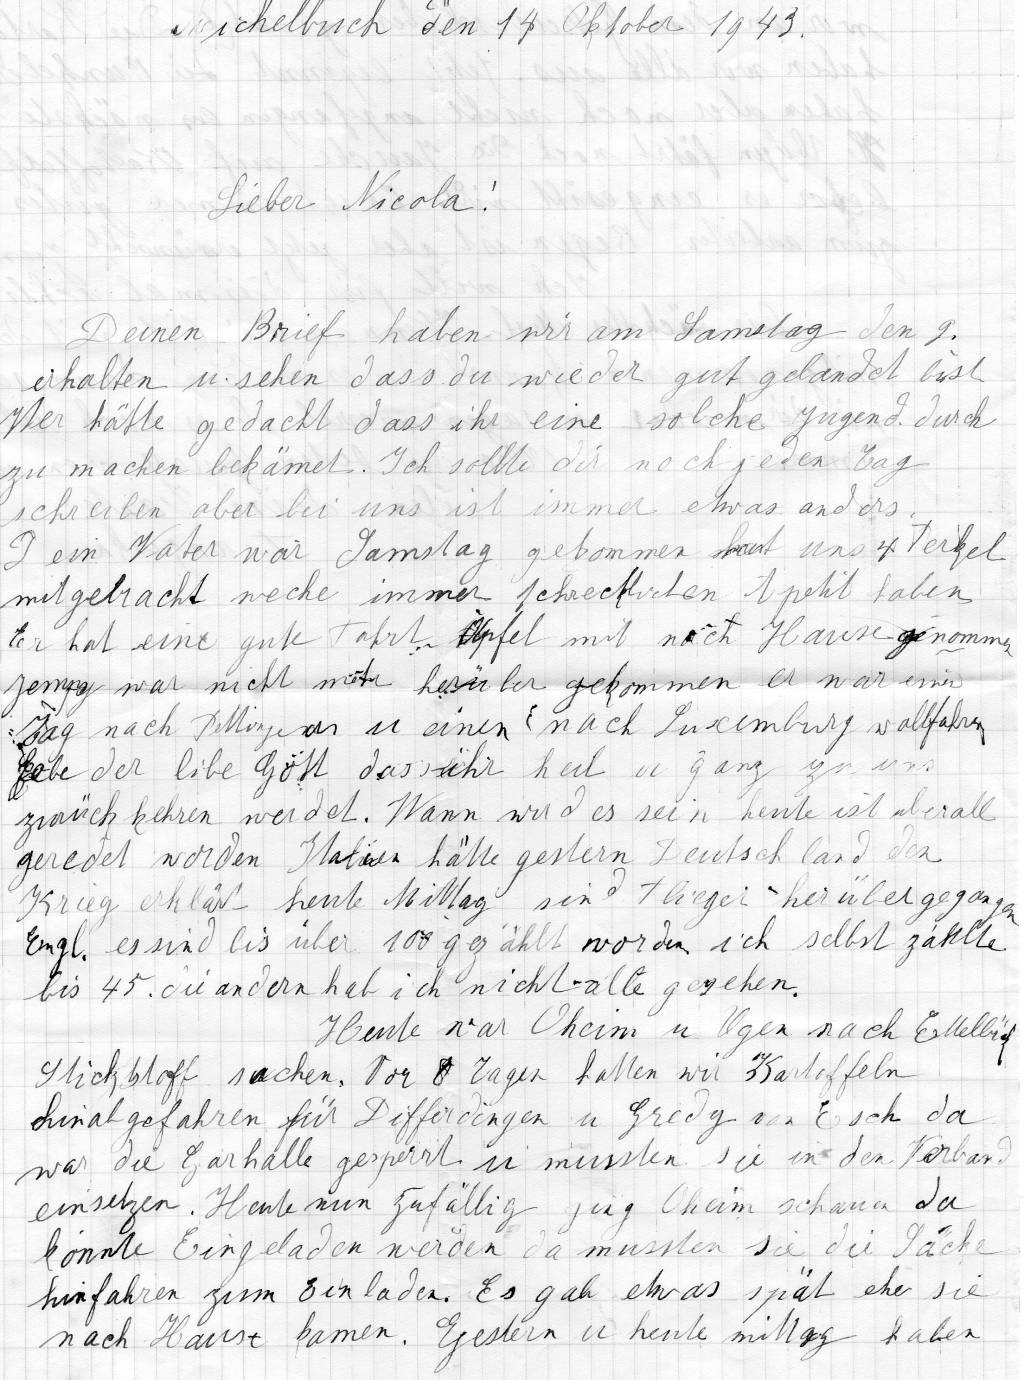 Michelbuch den 14 Oktober 1943.
Lieber Nicola!
Deinen Brief haben wir am Samstag den 9.
erhalten u. sehen dass du wieder gut gelandet bist
Wer hätte gedacht dass ihr eine solche Jugend durch
zu machen bekämet. Ich sollte dir noch jeden Tag
schreiben aber bei uns ist immer etwas anders.
Dein Vater war Samstag gekommen hat uns 4 Ferkel
mitgebracht weche immer schrecklichen Apetit haben
Er hat eine gute Fahrt. Äpfel mit nach Hause genommen
Jempy war nicht mehr herüber gekommen er war einen
Tag nach u einen nach Luxemburg wallfahren
Gebe der libe Gott dass ihr heil u ganz zu uns
zurück kehren werdet. Wann wird es sein heute ist uberall
geredet worden Italien hätte gestern Deutschland den
Krieg erklärt heute Mittag sind Flieger herübergegangen
Engl. es sind bis über 100 gezählt worden ich selbst zählte
bis 45. die andern hab ich nicht alle gesehen.
Heute war Oheim u Ogen nach Ettelbrück
Stickstoff suchen. Vor 8 Tagen hatten wir Kartoffeln
hinabgefahren für Differdingen u Gredy von Esch da
war die Garhalle gesperrt u mussten sie in den Verband
einsetzen. Heute nun zufällig ging Oheim schauen da
konnte Eingeladen werden da mussten sie die Säcke
hinfahren zum Einladen. Es gab etwas spät ehe sie
nach Hause kamen. Gestern u heute mittag haben